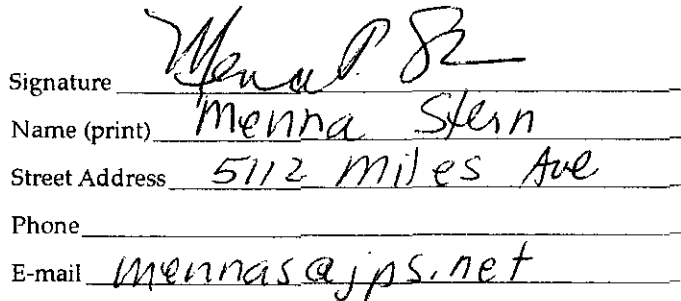 Signature Menna P. S
Name (print) Menna Stern
Street Address 5112 Miles Ave
Phone
E-mail mennas@jps.net